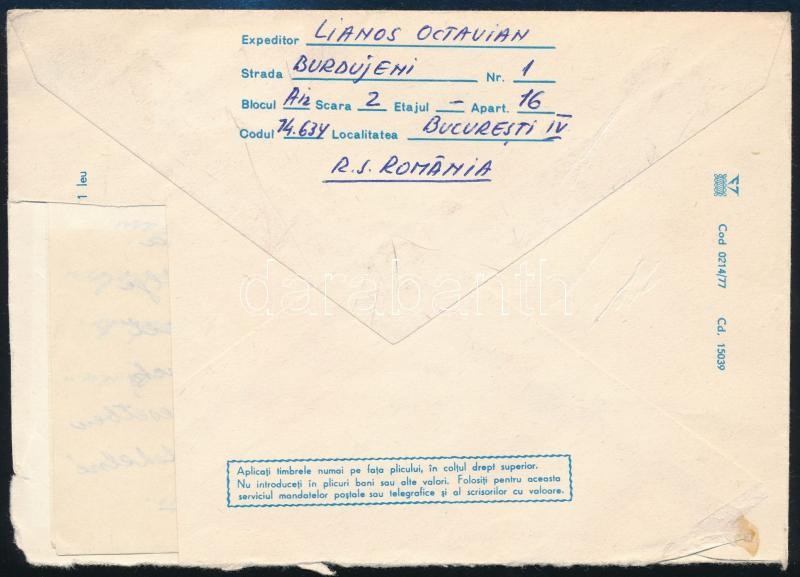 Expeditor LIANOS OCTAVIAN
Strada BURDUJENI Nr. 1
Blocul A12 Scara 2 Etajul — Apart. 16
Codul 74.634 Localitatea BUCUREȘTI IV
R.S. ROMÂNIA
1 leu
Cod 0214/77 Cd. 15039
darabanth
Aplicați timbrele numai pe fața plicului, în colțul drept superior.
Nu introduceți în plicuri bani sau alte valori. Folosiți pentru aceasta
serviciul mandatelor poștale sau telegrafice și al scrisorilor cu valoare.